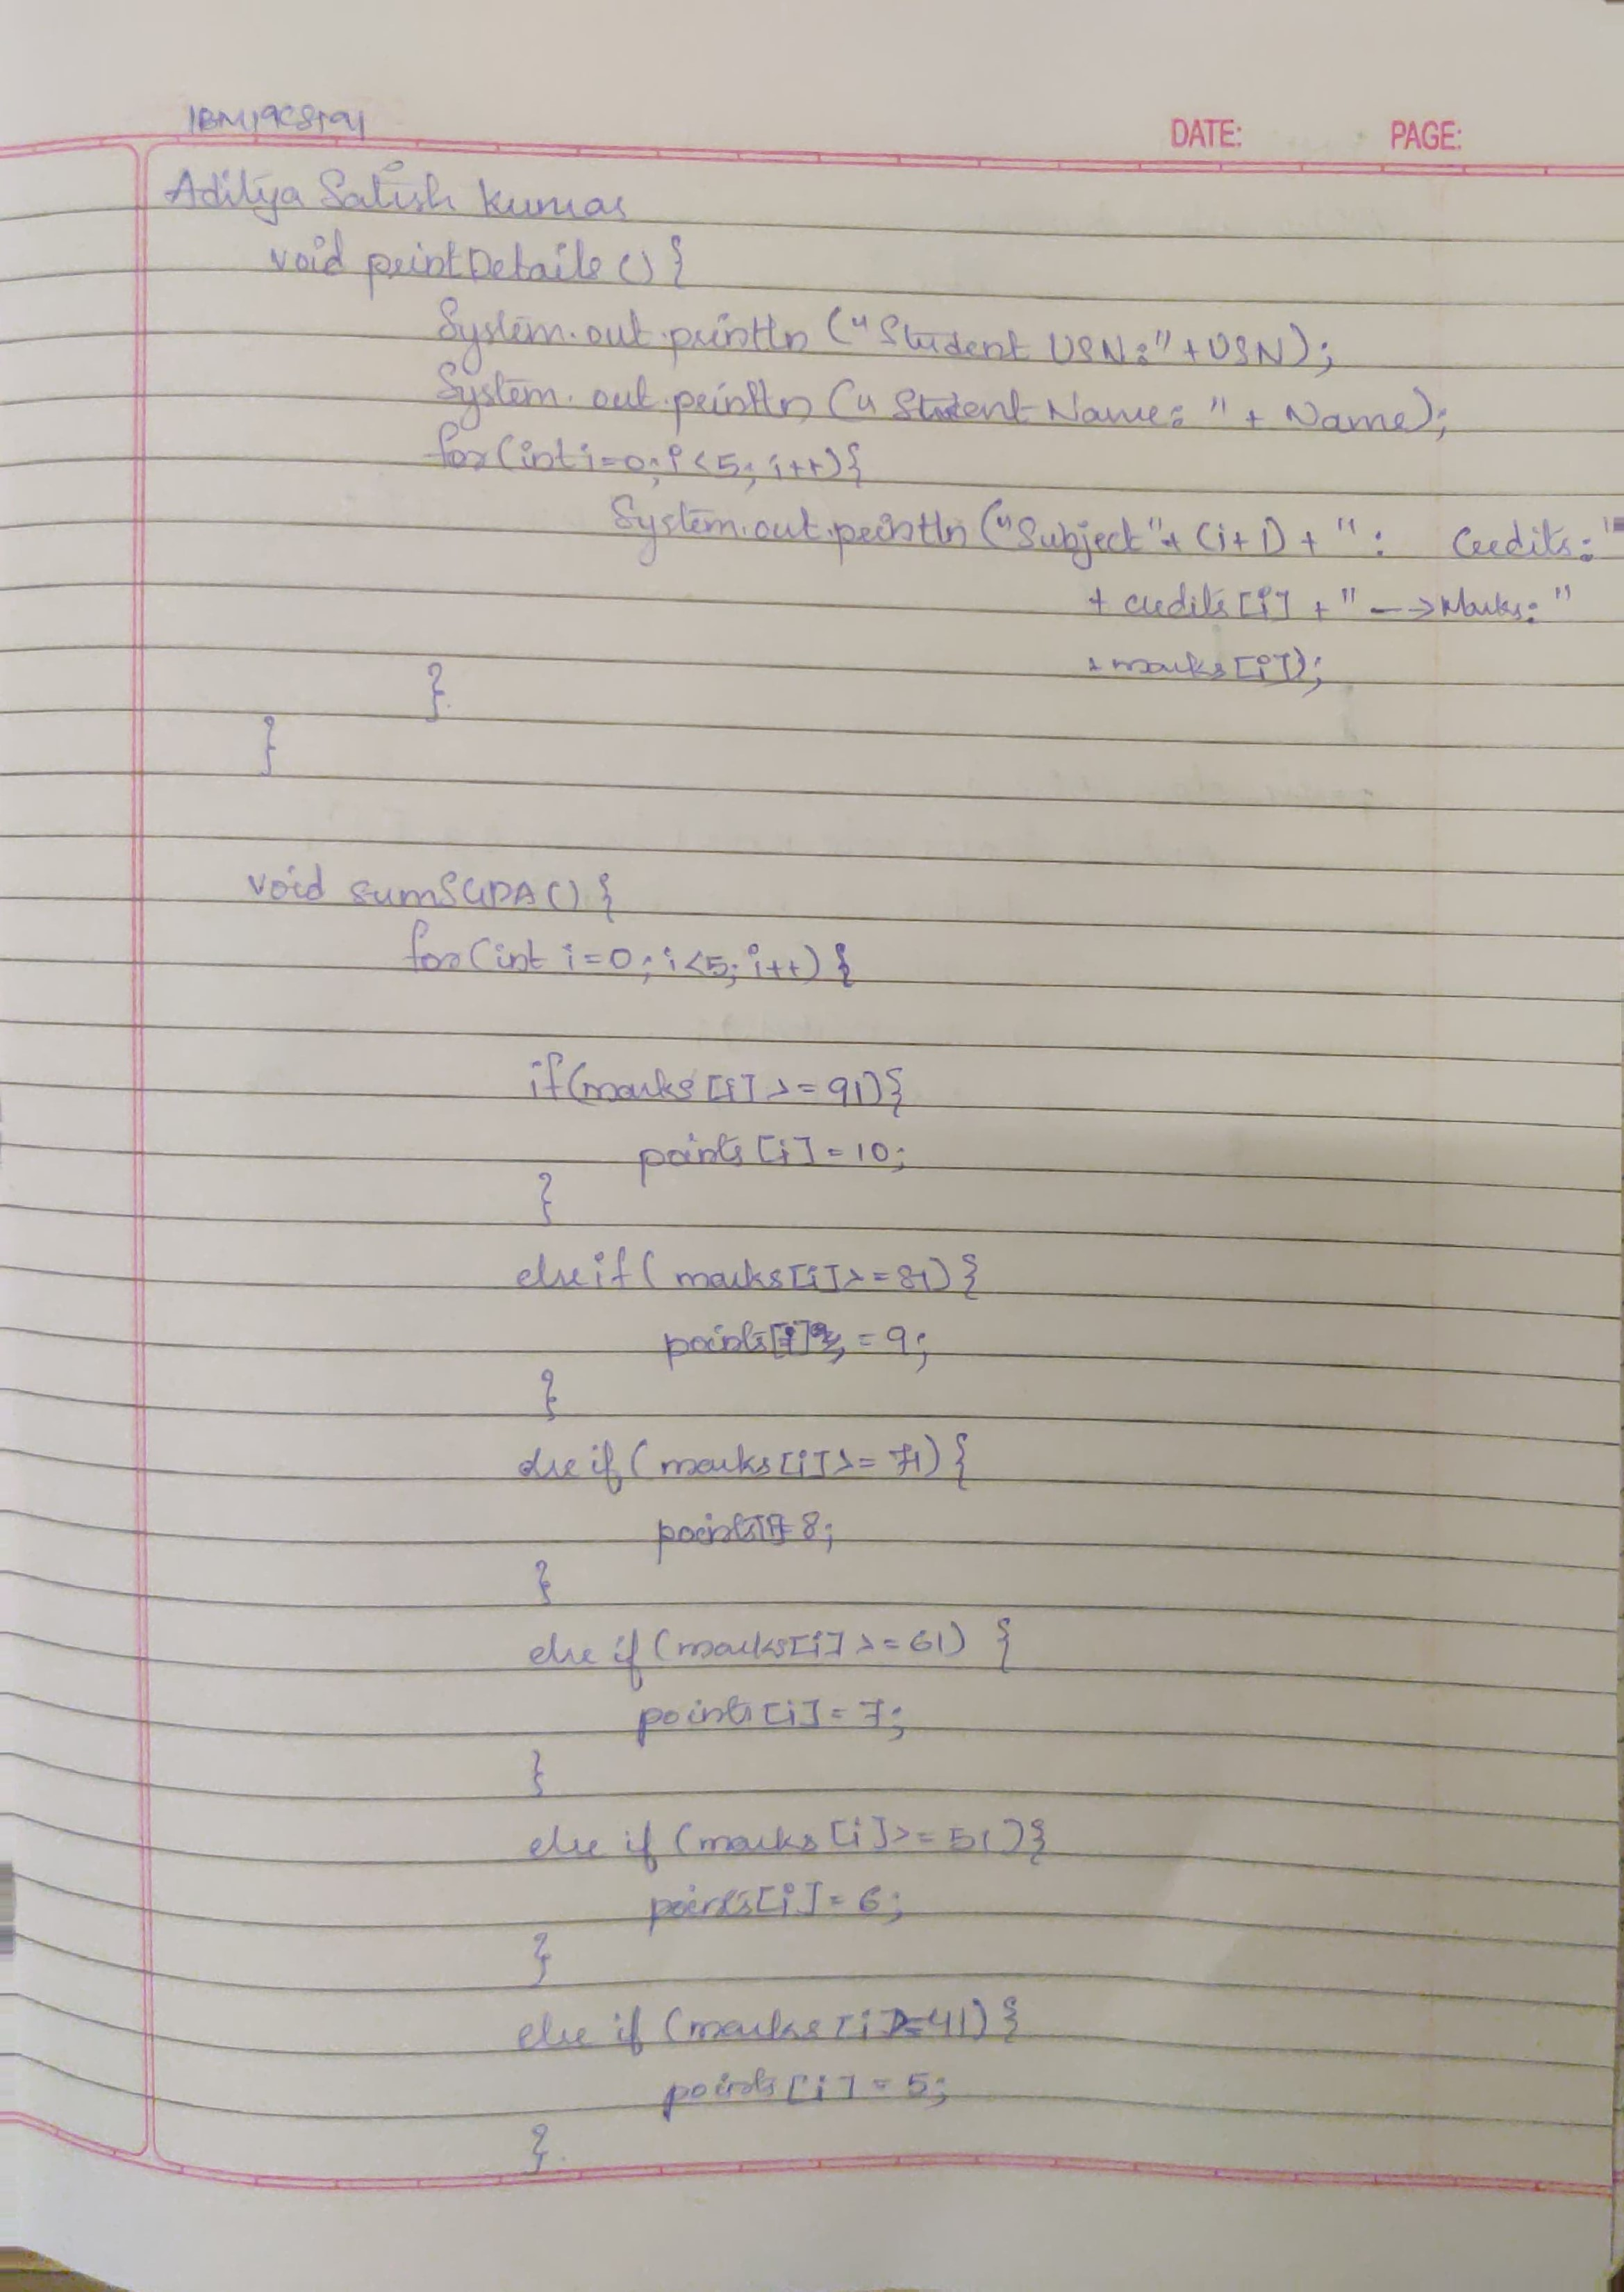 1BM19CS191
DATE: PAGE:
Aditya Satish Kumar
void printDetails () {
System.out.println ("Student USN:" + USN);
System.out.println ("Student Name: " + Name);
for(int i=0; i<5; i++){
System.out.println ("Subject "+ (i+1) + ": Credits: "
+ credits [i] + " --> Marks: "
+ marks [i]);
}
}
void sumSGPA() {
for(int i=0; i<5; i++) {
if(marks [i] >= 91){
points [i] = 10;
}
else if ( marks[i] >= 81) {
points[i] = 9;
}
else if ( marks [i] >= 71) {
points[i] = 8;
}
else if (marks[i] >= 61) {
points [i] = 7;
}
else if (marks [i] >= 51) {
points[i] = 6;
}
else if (marks [i] >= 41) {
points [i] = 5;
}